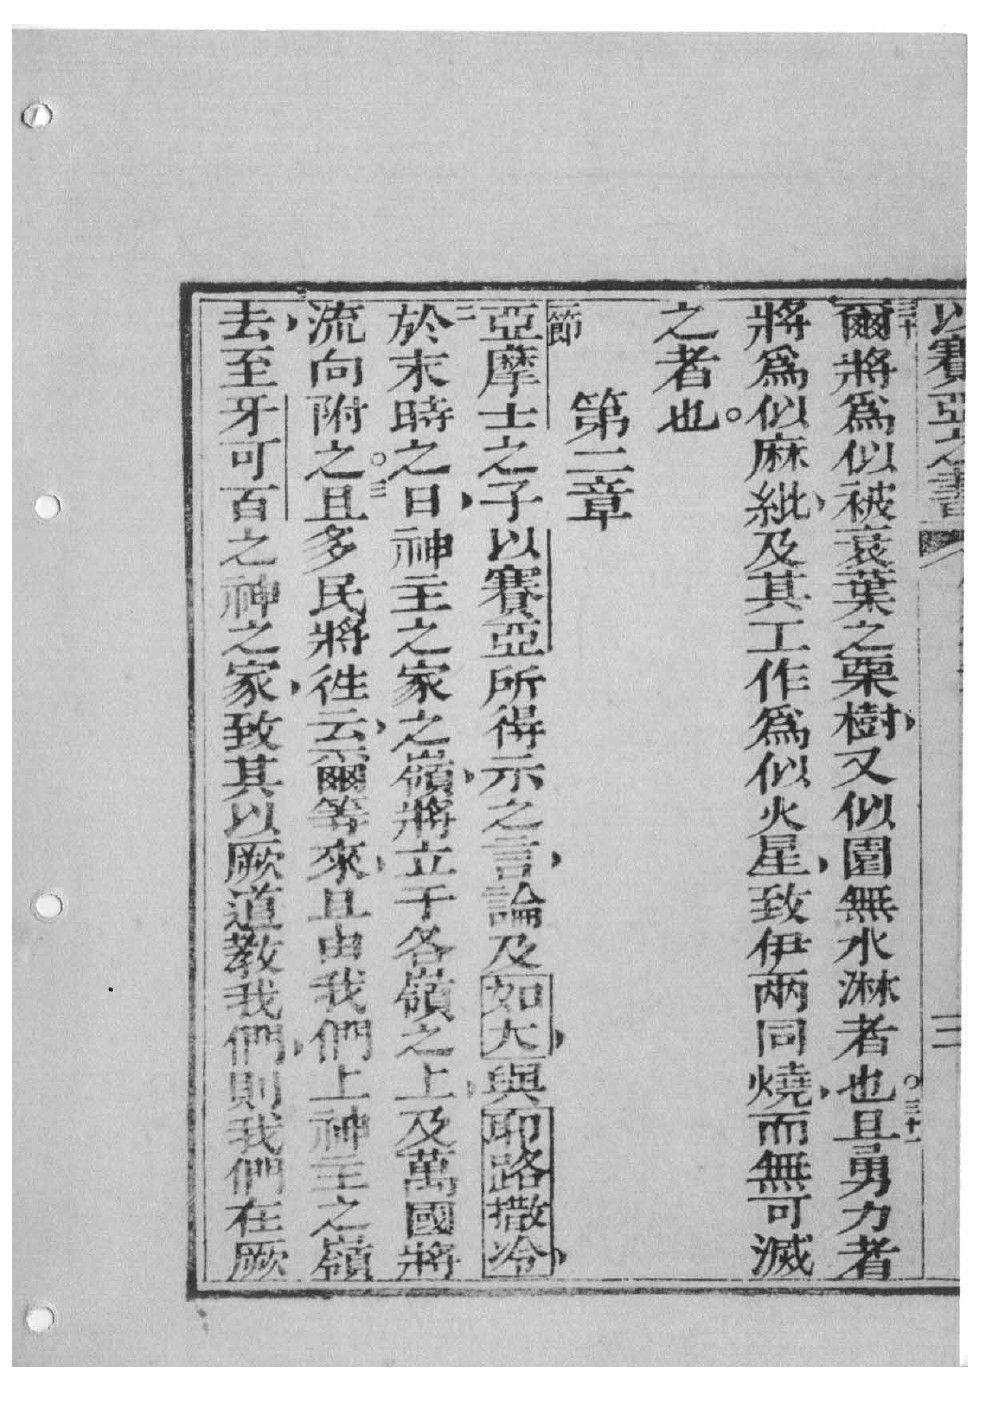 以賽亞之書 三
三十 爾將爲似被衰葉之栗樹又似園無水淋者也。三十一且勇力者
將爲似麻紕及其工作爲似火星致伊兩同燒而無可滅
之者也。
第二章
一節 亞摩士之子以賽亞所得示之言論及如大與耶路撒冷
二 於末時之日神主之家之嶺將立于各嶺之上及萬國將
流向附之。三且多民將徃云爾等來且由我們上神主之嶺
去至牙可百之神之家致其以厥道教我們則我們在厥